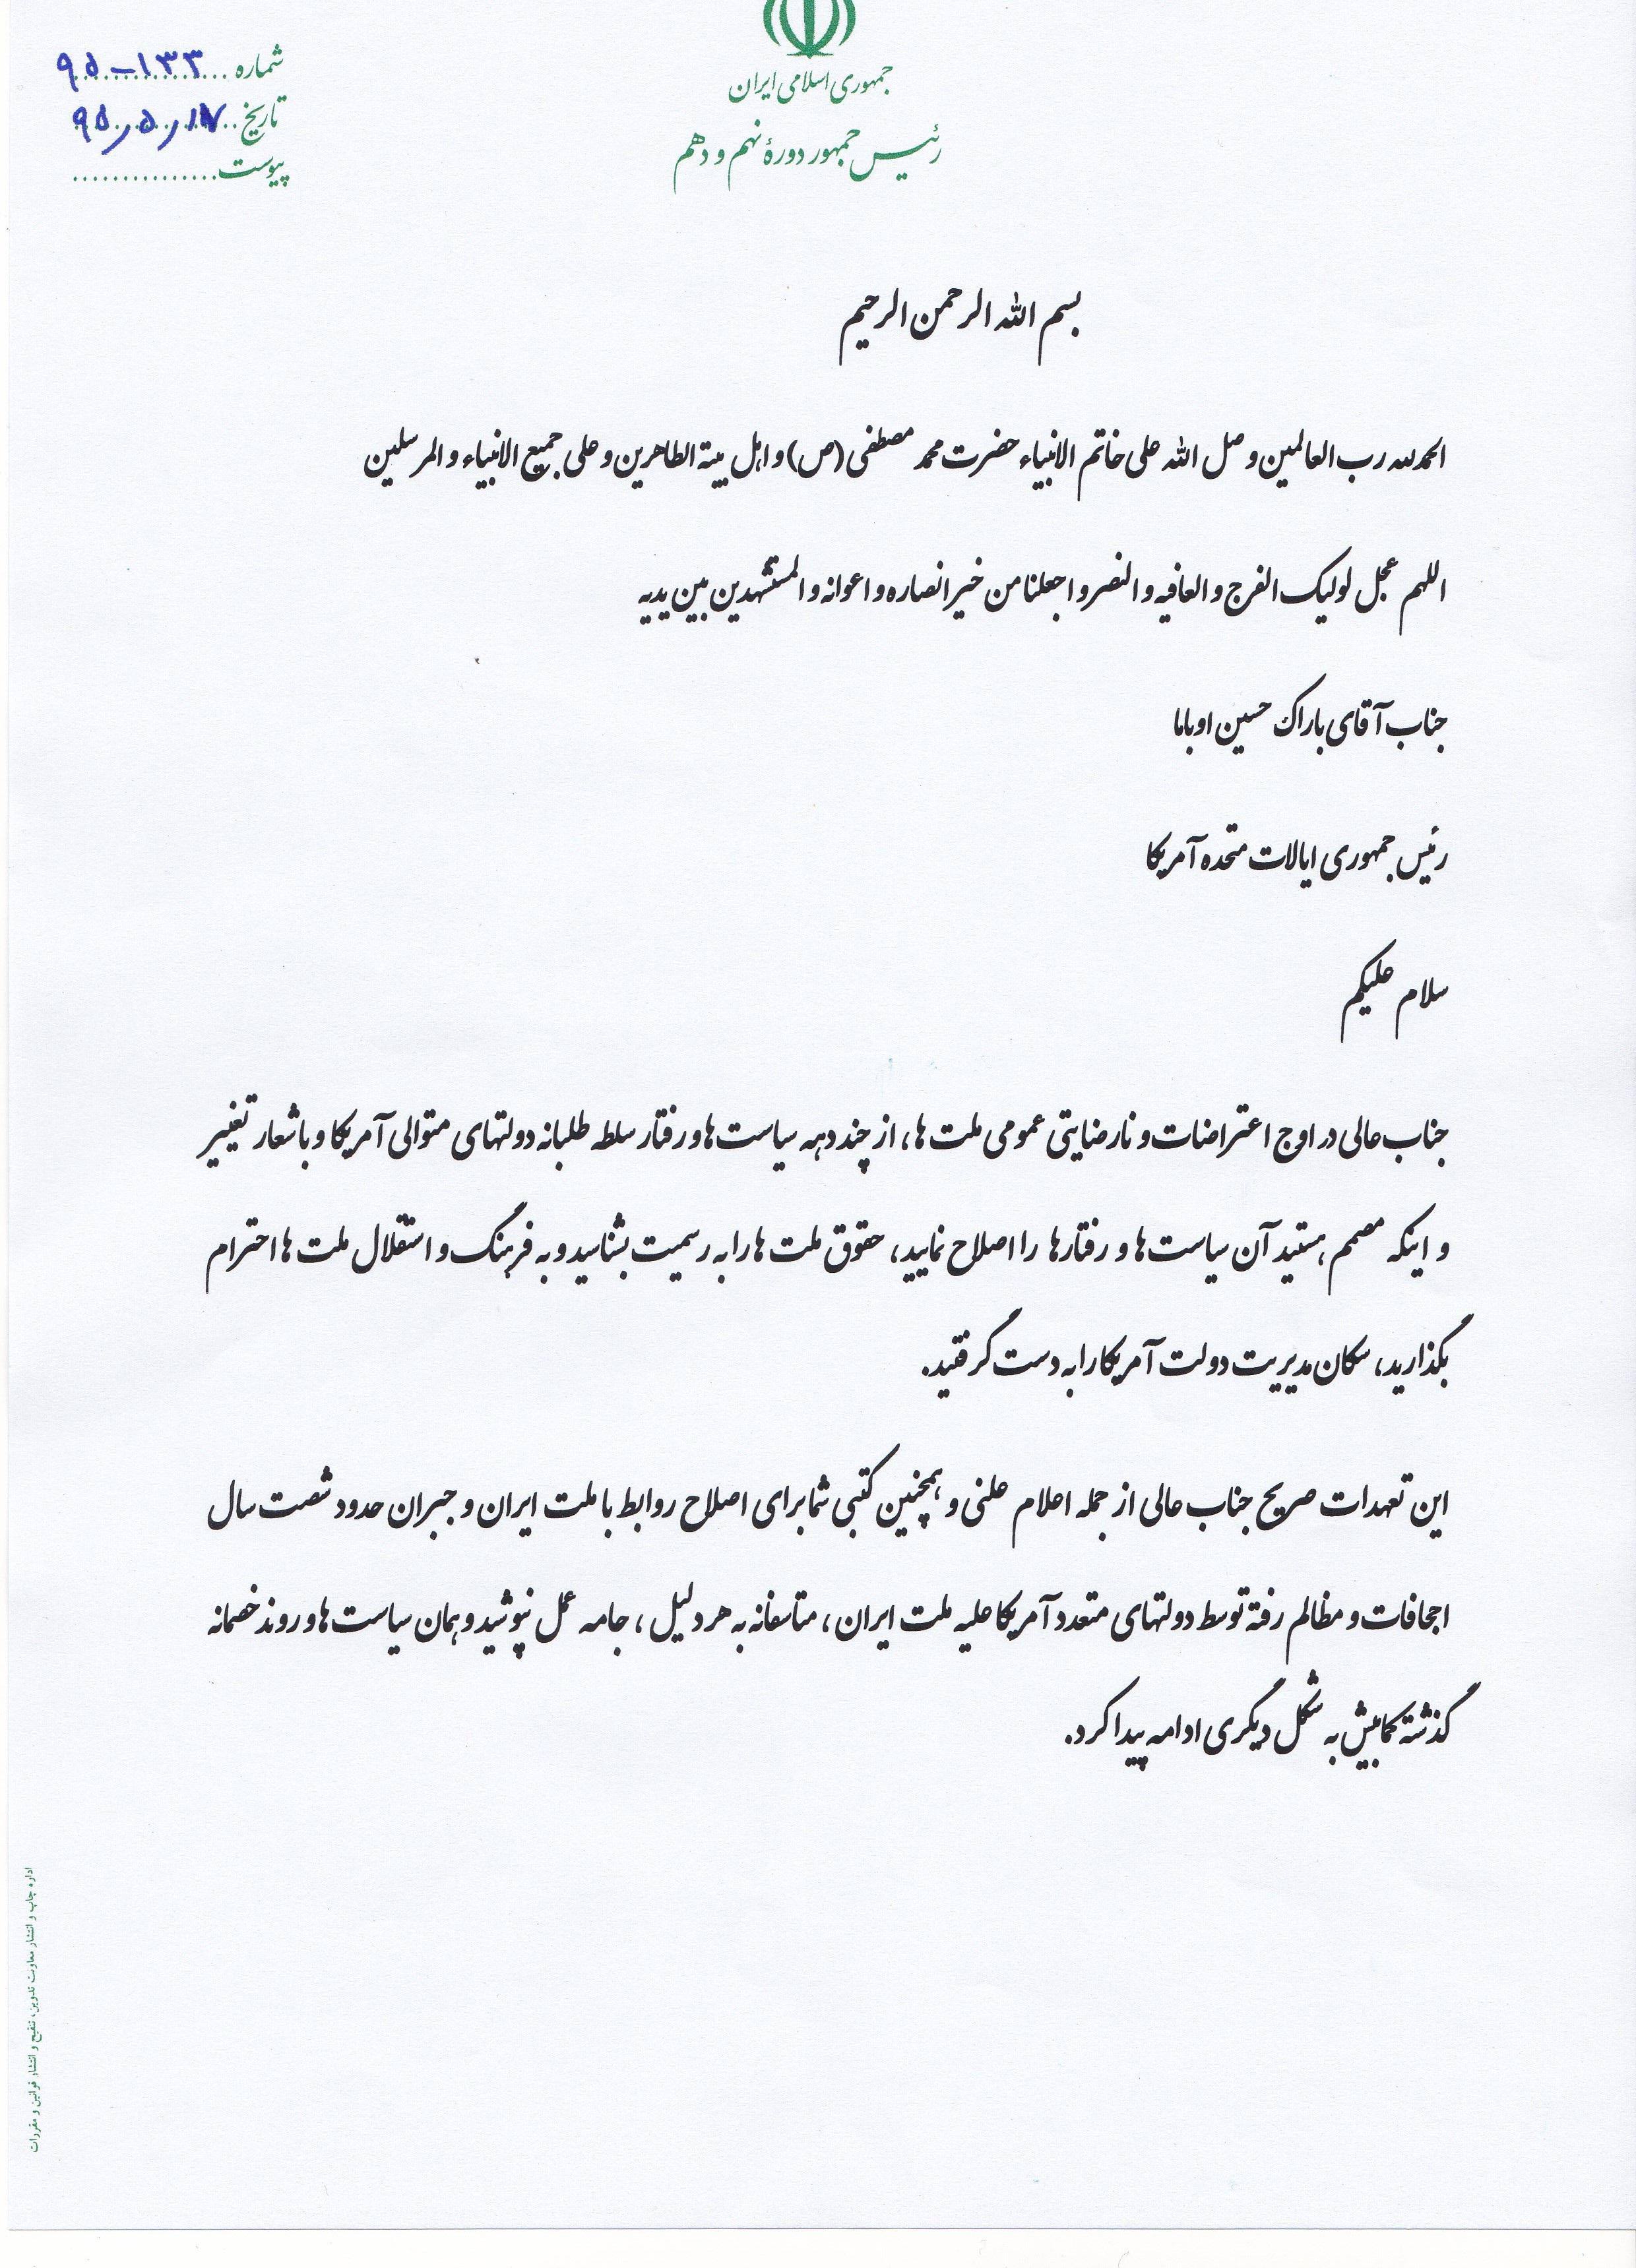 جمهوری اسلامی ایران
رئیس جمهور دورهٔ نهم و دهم
شماره ۱۳۳-۹۵
تاریخ ۹۵/۵/۱۷
پیوست
بسم الله الرحمن الرحیم
الحمدلله رب العالمین و صل الله علی خاتم الانبیاء حضرت محمد مصطفی (ص) و اهل بیته الطاهرین و علی جمیع الانبیاء و المرسلین
اللهم عجل لولیک الفرج و العافیه و النصر و اجعلنا من خیر انصاره و اعوانه و المستشهدین بین یدیه
جناب آقای باراک حسین اوباما
رئیس جمهوری ایالات متحده آمریکا
سلام علیکم
جناب عالی در اوج اعتراضات و نارضایتی عمومی ملت ها، از چند دهه سیاست ها و رفتار سلطه طلبانه دولتهای متوالی آمریکا و با شعار تغییر
و اینکه مصمم هستید آن سیاست ها و رفتارها را اصلاح نمایید، حقوق ملت ها را به رسمیت بشناسید و به فرهنگ و استقلال ملت ها احترام
بگذارید، سکان مدیریت دولت آمریکا را به دست گرفتید.
این تعهدات صریح جناب عالی از جمله اعلام علنی و همچنین کتبی شما برای اصلاح روابط با ملت ایران و جبران حدود شصت سال
اجحافات و مظالم رفته توسط دولتهای متعدد آمریکا علیه ملت ایران، متاسفانه به هر دلیل، جامه عمل نپوشید و همان سیاست ها و روند خصمانه
گذشته کمابیش به شکل دیگری ادامه پیدا کرد.
اداره چاپ و انتشار معاونت تدوین، تنقیح و انتشار قوانین و مقررات